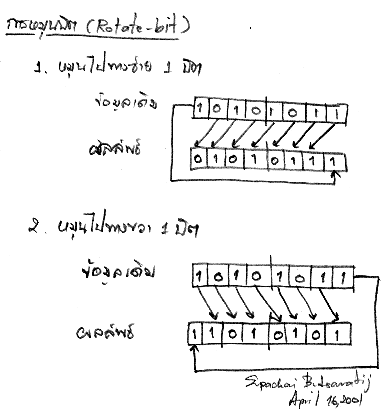 การหมุนบิต (Rotate-bit)
1. หมุนไปทางซ้าย 1 บิต
ข้อมูลเดิม 1 0 1 0 1 0 1 1
ผลลัพธ์ 0 1 0 1 0 1 1 1
2. หมุนไปทางขวา 1 บิต
ข้อมูลเดิม 1 0 1 0 1 0 1 1
ผลลัพธ์ 1 1 0 1 0 1 0 1
Supachai
April 16, 2001